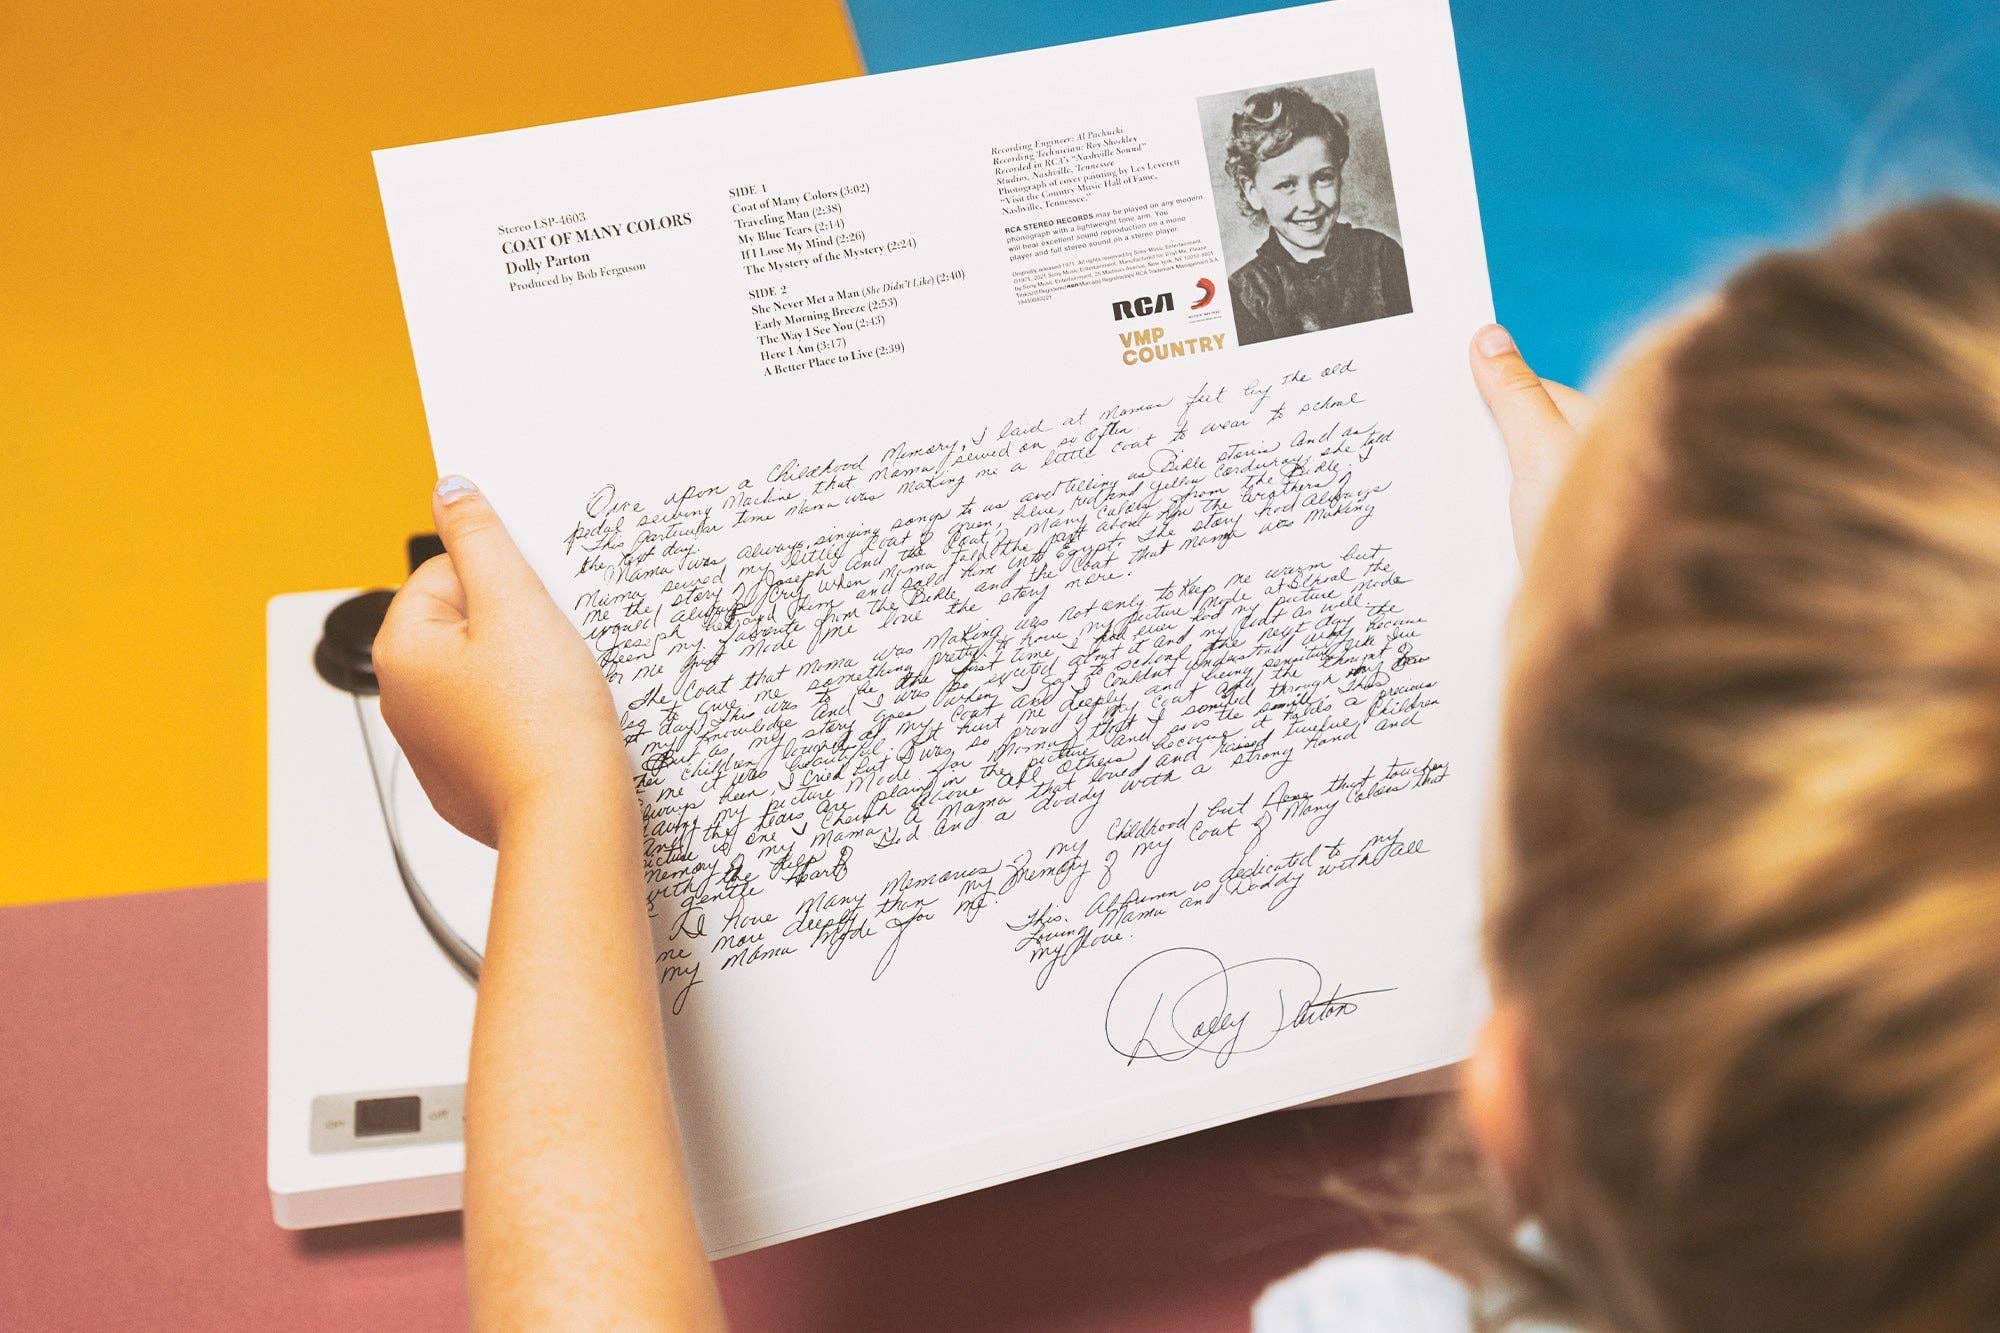 Stereo LSP-4603
COAT OF MANY COLORS
Dolly Parton
Produced by Bob Ferguson
SIDE 1
Coat of Many Colors (3:02)
Traveling Man (2:38)
My Blue Tears (2:14)
If I Lose My Mind (2:26)
The Mystery of the Mystery (2:24)
SIDE 2
She Never Met a Man (She Didn't Like) (2:40)
Early Morning Breeze (2:53)
The Way I See You (2:43)
Here I Am (3:17)
A Better Place to Live (2:39)
Recording Engineer: Al Pachucki
Recording Technician: Roy Shockley
Recorded in RCA's "Nashville Sound"
Studios, Nashville, Tennessee
Photograph of cover painting by Les Leverett
"Visit the Country Music Hall of Fame,
Nashville, Tennessee."
RCA STEREO RECORDS may be played on any modern
phonograph with a lightweight tone arm. You
will hear excellent sound reproduction on a mono
player and full stereo sound on a stereo player.
Originally released 1971. All rights reserved by Sony Music Entertainment.
RCA
VMP
COUNTRY
Once upon a Childhood Memory, I laid at Mamas feet by the old
pedal sewing Machine, that Mama sewed on so often.
This particular time Mama was making me a little coat to wear to school
the next day.
Mama was always singing songs to us and telling us Bible stories and as
Mama sewed my little coat of green, blue, red and yellow corduroy, she told
me the story of Joseph and the Coat of many Colors from the Bible. I
would always cry when Mama told the part about how the brothers of
Joseph and sold him into Egypt. The story had always
been my favorite from the Bible, and the coat that mama was making
for me just made me love the story more.
The Coat that Mama was making was not only to keep me warm but
to give me something pretty to have my picture made at School the
day. This was to be the first time I had ever had my picture made
my knowledge and I was so excited about it and my coat as well.
But as my story goes when I got to school the next day the
children laughed at my coat and I couldn't understand why because
me it was beautiful. It hurt me deeply and being sensitive like I've
always been, I cried but I was so proud of my coat and the thought of
my picture made for Mama that I smiled through my tears
the tears are plain in the picture and so is the smile. This
is one I cherish above all others because it holds a precious
memory of my Mama, a Mama that loved and raised twelve children
with the help of God and a daddy with a strong hand and
gentle heart
I have many memories of my childhood but none that touches
me more deeply than my memory of my Coat of Many Colors that
my mama made for me.
This Album is dedicated to my
Loving Mama and Daddy with all
my love.
Dolly Parton